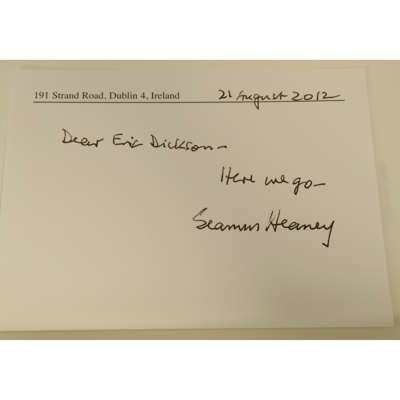 191 Strand Road, Dublin 4, Ireland 21 August 2012
Dear Eric Dickson -
Here we go -
Seamus Heaney